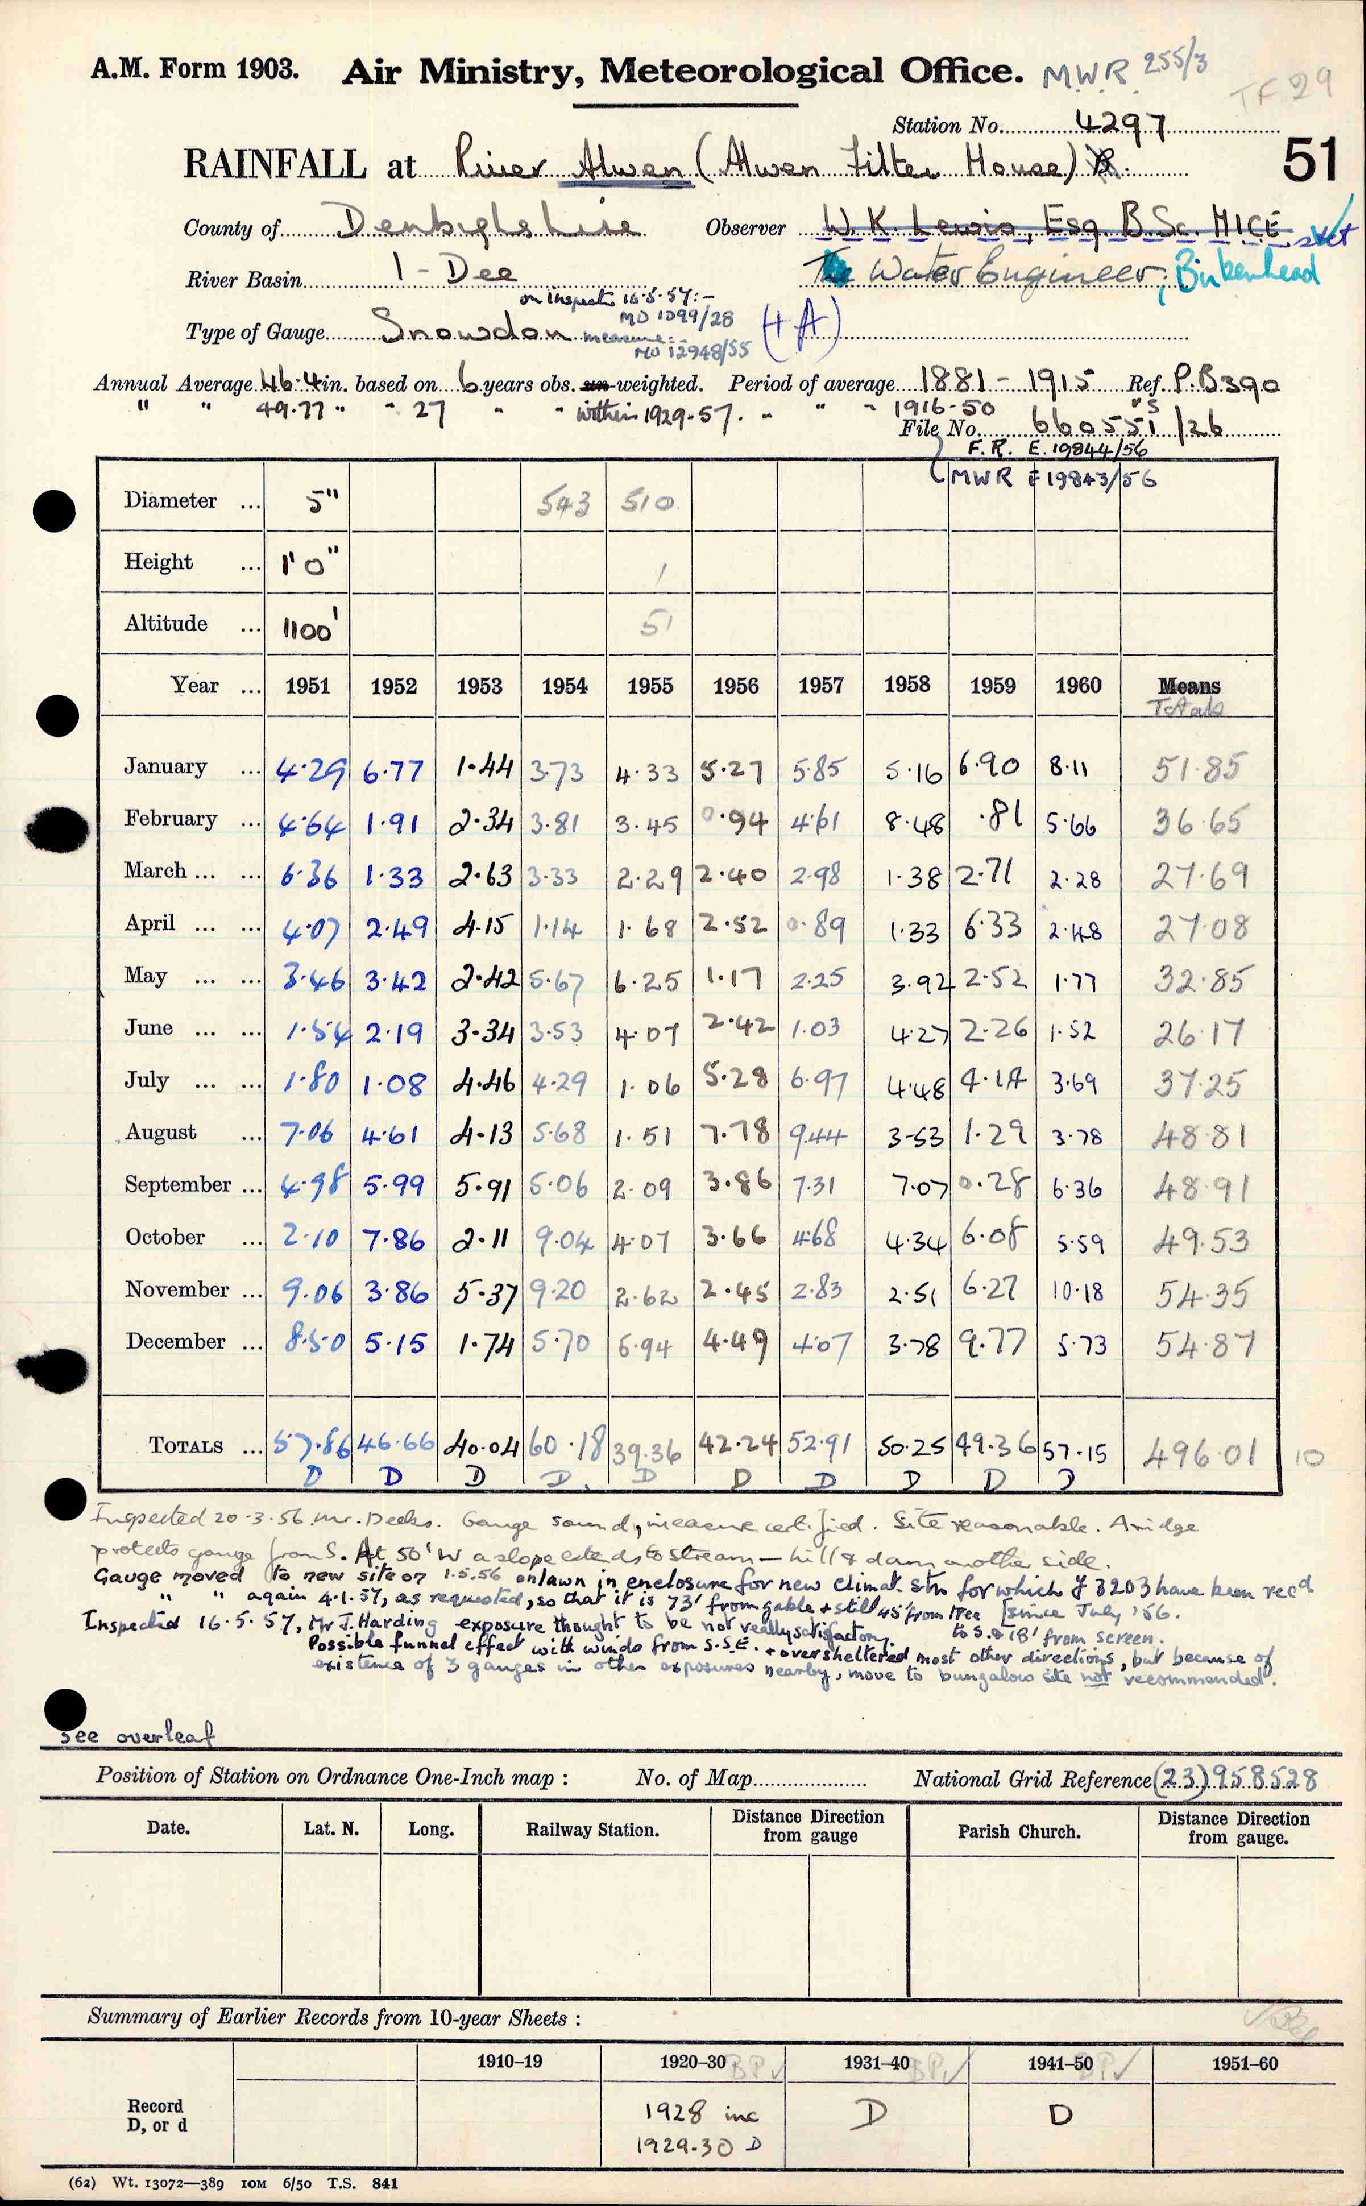 A.M. Form 1903. Air Ministry, Meteorological Office. M.W.R. 255/3
TF 29
Station No. 4297
51
RAINFALL at River Alwen (Alwen Filter House)
County of Denbighshire Observer W. K. Lewis, Esq. B.Sc. MICE stet
River Basin 1 - Dee The Water Engineer, Birkenhead
on inspectn 16.5.57:-
MO 1099/28
Type of Gauge Snowdon measure (+A)
MO 12948/55
Annual Average 46.4 in. based on 6 years obs. un-weighted. Period of average 1881 - 1915 Ref. P.B390
" " 49.77 " " 27 " " within 1929-57. " " " 1916-50 "s
File No. 660551/26
F.R. E.19844/56
MWR E19843/56
Diameter ... 5" 543 510
Height ... 1' 0" 1
Altitude ... 1100' 51
Year ... 1951 1952 1953 1954 1955 1956 1957 1958 1959 1960 Means
Totals
January ... 4.29 6.77 1.44 3.73 4.33 5.27 5.85 5.16 6.90 8.11 51.85
February ... 4.64 1.91 2.34 3.81 3.45 0.94 4.61 8.48 .81 5.66 36.65
March ... ... 6.36 1.33 2.63 3.33 2.29 2.40 2.98 1.38 2.71 2.28 27.69
April ... ... 4.07 2.49 4.15 1.14 1.68 2.52 0.89 1.33 6.33 2.48 27.08
May ... ... 3.46 3.42 2.42 5.67 6.25 1.17 2.25 3.92 2.52 1.77 32.85
June ... ... 1.54 2.19 3.34 3.53 4.07 2.42 1.03 4.27 2.26 1.52 26.17
July ... ... 1.80 1.08 4.46 4.29 1.06 5.28 6.97 4.48 4.14 3.69 37.25
August ... 7.06 4.61 4.13 5.68 1.51 7.78 9.44 3.53 1.29 3.78 48.81
September ... 4.98 5.99 5.91 5.06 2.09 3.86 7.31 7.07 0.28 6.36 48.91
October ... 2.10 7.86 2.11 9.04 4.07 3.66 4.68 4.34 6.08 5.59 49.53
November ... 9.06 3.86 5.37 9.20 2.62 2.45 2.83 2.51 6.27 10.18 54.35
December ... 8.50 5.15 1.74 5.70 6.94 4.49 4.07 3.78 9.77 5.73 54.87
TOTALS ... 57.86 46.66 40.04 60.18 39.36 42.24 52.91 50.25 49.36 57.15 496.01 10
D D D D. D D D D D D
Inspected 20.3.56 Mr. Deeks. Gauge sound, measure certified. Site reasonable. A ridge
protects gauge from S. At 50' W a slope extends to stream — hill & dam another side.
Gauge moved to new site on 1.5.56 on lawn in enclosure for new climat. stn for which f 3203 have been recd
" " again 4.1.57, as requested, so that it is 73' from gable & still 45' from tree [since July '56.
to S. & 18' from screen.
Inspected 16.5.57, Mr J. Harding exposure thought to be not really satisfactory.
Possible funnel effect with winds from S.S.E. & oversheltered most other directions, but because of
existence of 3 gauges in other exposures nearby, move to bungalow site not recommended.
See overleaf
Position of Station on Ordnance One-Inch map : No. of Map National Grid Reference (23)958528
Date. Lat. N. Long. Railway Station. Distance Direction from gauge Parish Church. Distance Direction from gauge.
Summary of Earlier Records from 10-year Sheets :
1910–19 1920–30 BP✓ 1931–40 BP✓ 1941–50 BP✓ 1951–60
Record
D, or d
1928 inc D D
1929-30 D
(62) Wt. 13072—389 10M 6/50 T.S. 841